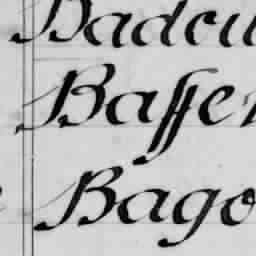 Badcu
Baſſer
Bago